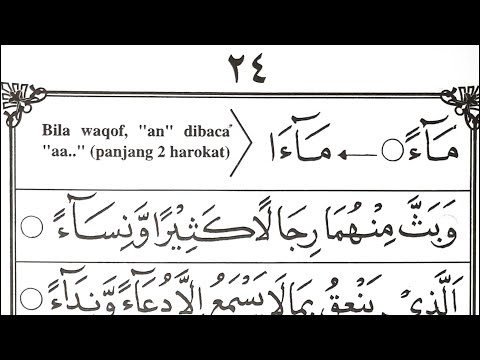 ٢٤
مَآءً ○ ← مَآءَا
Bila waqof, "an" dibaca
"aa.." (panjang 2 harokat)
وَبَثَّ مِنْهُمَا رِجَالًا كَثِيْرًا وَّنِسَآءً ○
الَّذِيْ يَنْعِقُ بِمَا لَا يَسْمَعُ اِلَّا دُعَآءً وَّنِدَآءً ○